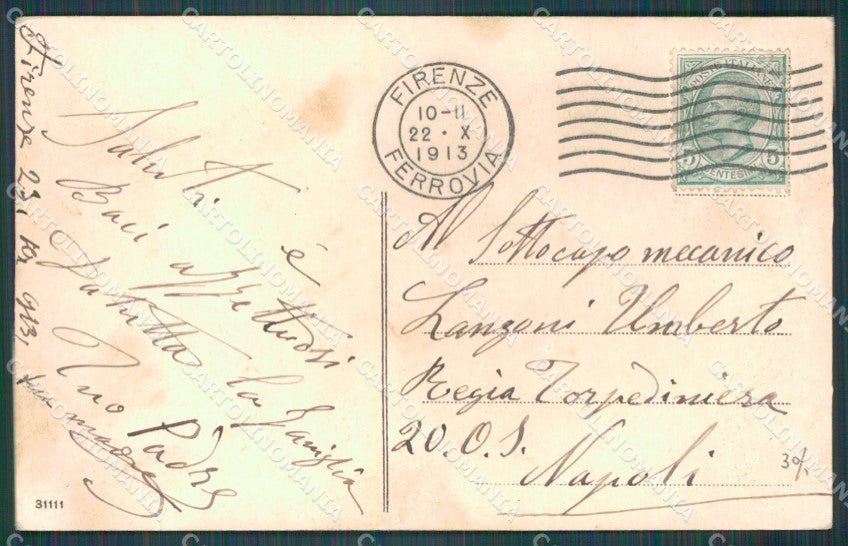 Firenze 23, 10, 913,
Saluti è
Baci affettuosi
Saluta la Famiglia
Tuo Padre
madre
31111
FIRENZE
10-11
22 · X
1913
FERROVIA
POSTE ITALIANE
5 CENTESIMI 5
Al Sottocapo meccanico
Lanzoni Umberto
Regia Torpediniera
20. O. S.
Napoli
CARTOLINOMANIA